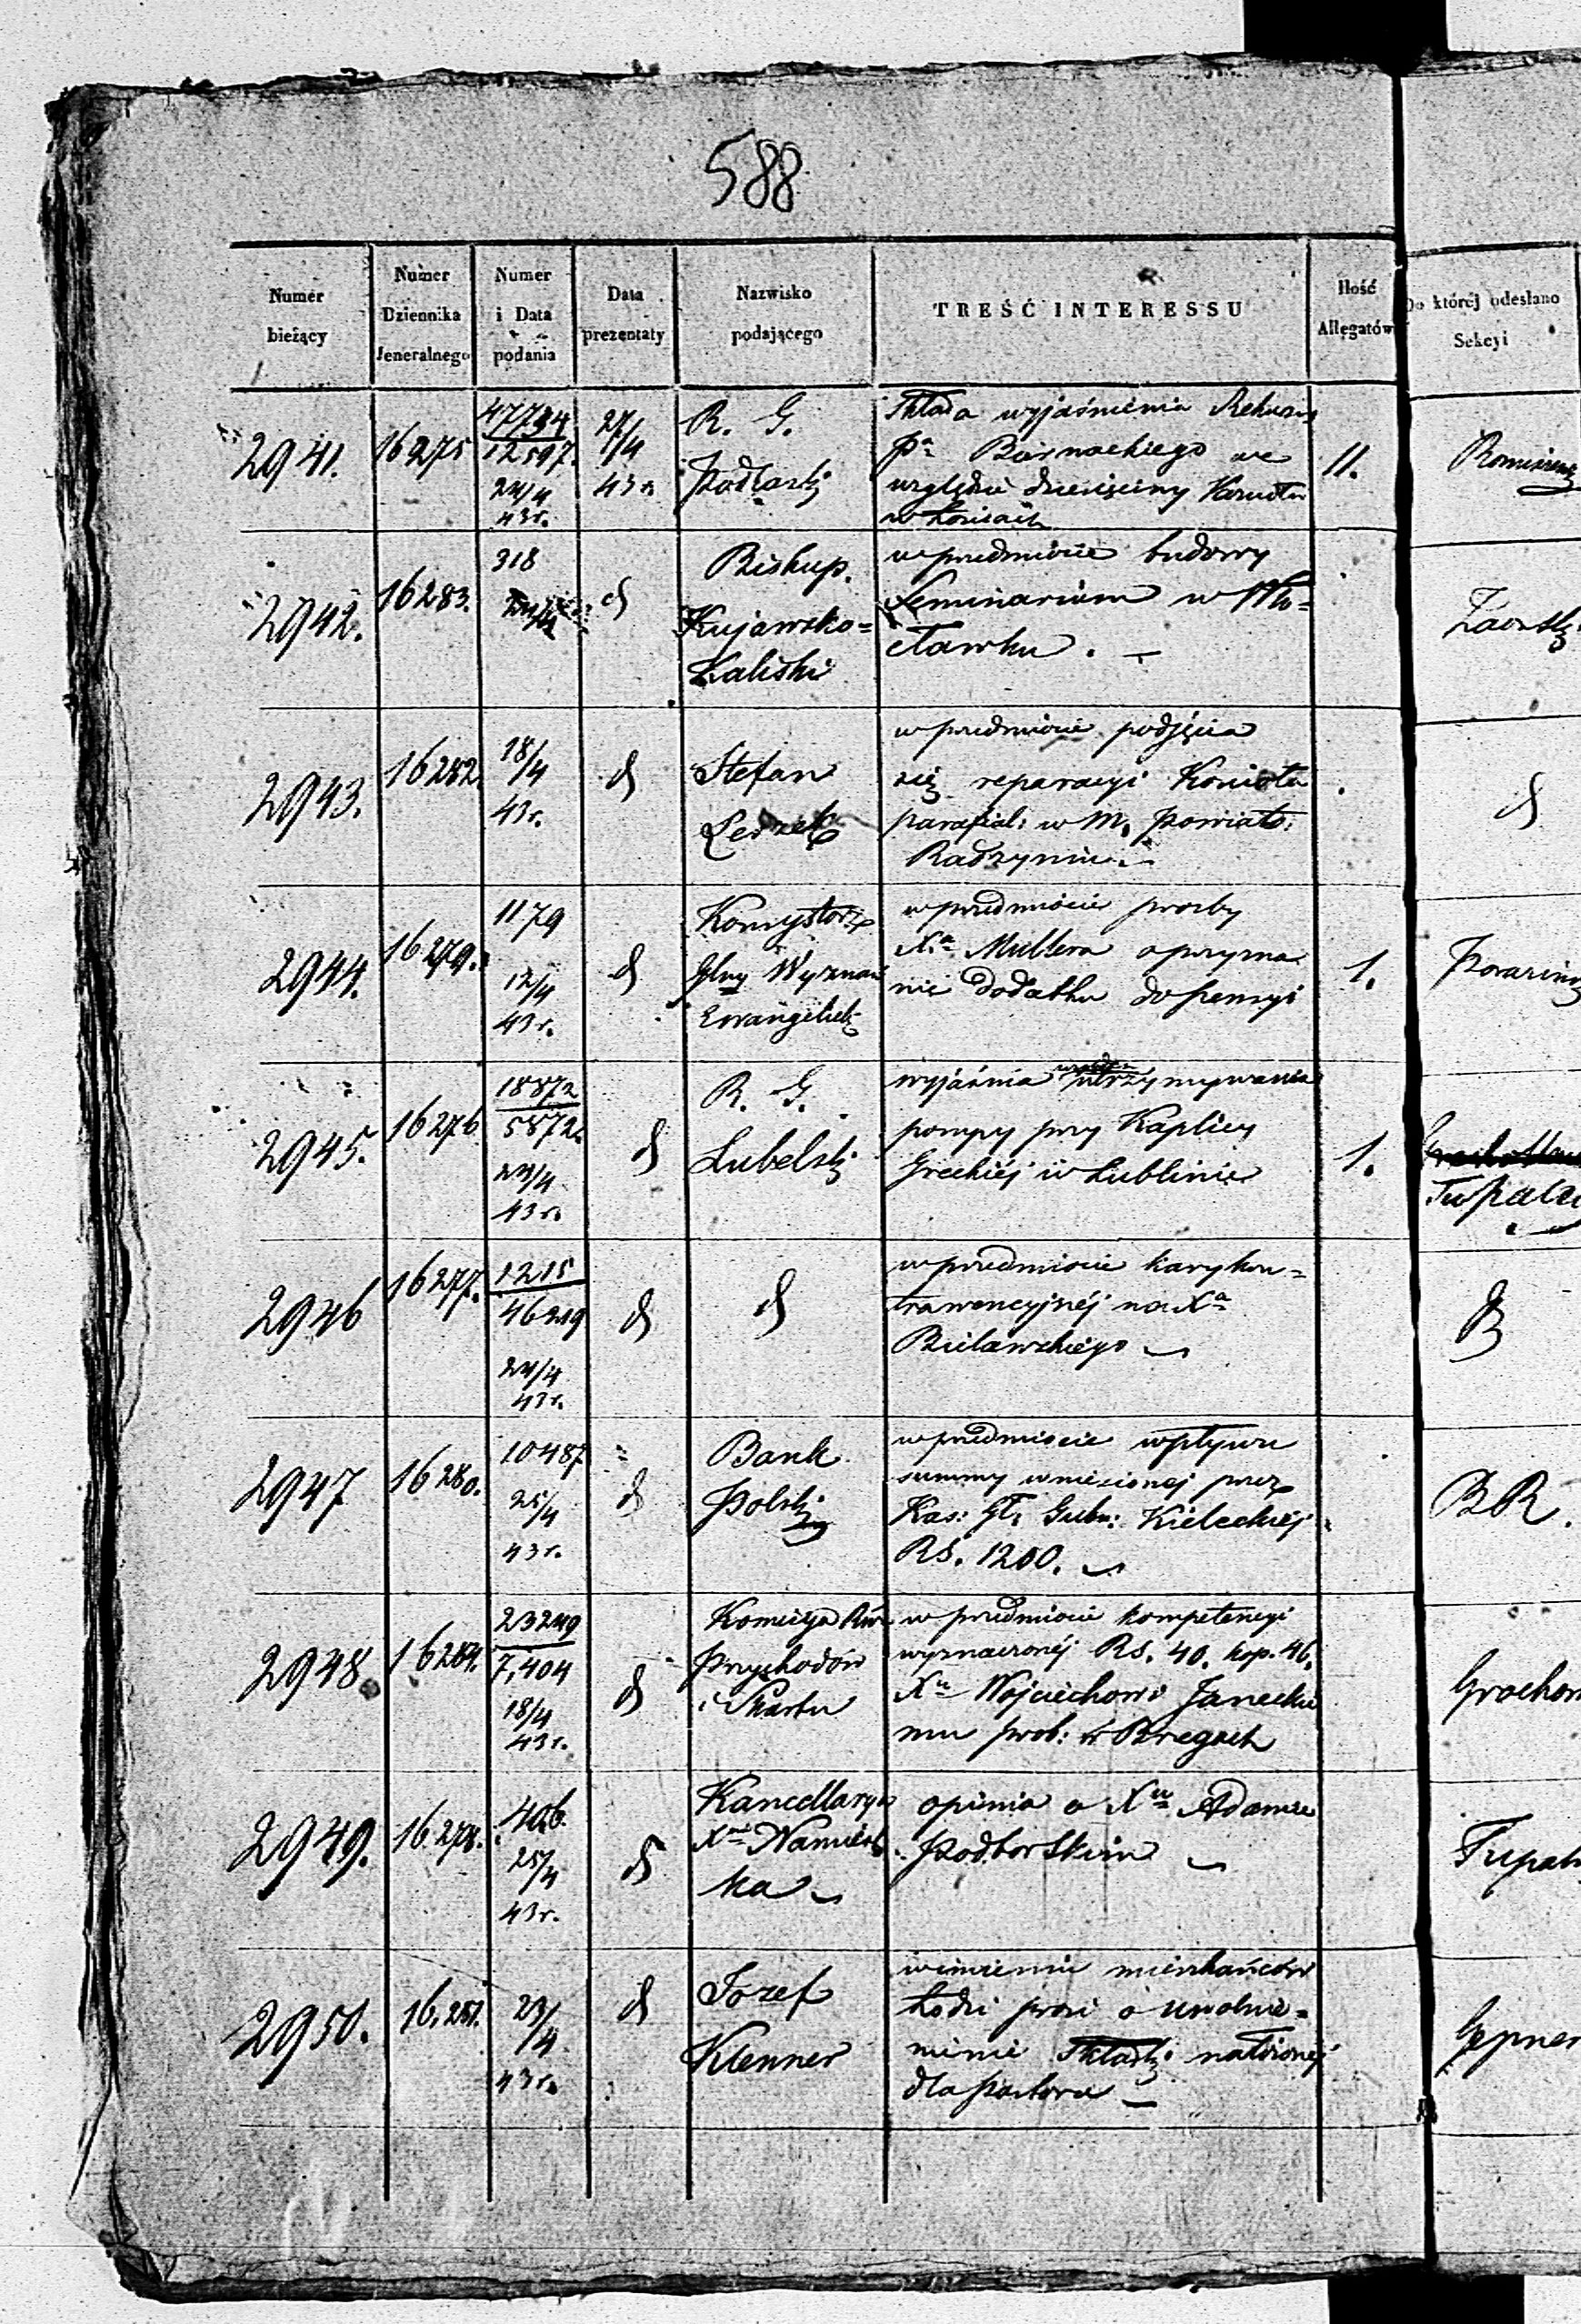 588
Numer bieżący
Numer Dziennika Jeneralnego
Numer i Data podania
Data prezentaty
Nazwisko podającego
TREŚĆ INTERESSU
Ilość Allegatów
Do którćj odesłano Sekcyi
2941.
16275
47734
12597.
24/4
43 r.
27/4
43 r.
R. G.
Podlaski
Składa wyjaśnienia
Pa Biernackiego we
względzie dziesięciny
w Łosicach
11.
2942.
16283.
318
24/4
d
Biskup.
Kujawsko=
Kaliski
w przedmiocie budowy
Seminarium w Wło=
cławku. —
2943.
16282.
18/4
43 r.
d
Stefan
w przedmiocie podjęcia
się reparacyi Kościoła
parafial: w M. Powiato:
Radzyniu. —
d
2944.
16279.
1179
12/4
43 r.
d
Konsystorz
Glny Wyznań
Ewangelick
w przedmiocie prośby
Xa Mullera o przyzna
nie dodatku do pensyi
1.
2945.
16276.
18872
5872.
24/4
43 r.
d
R. G.
Lubelski
wyjaśnia utrzymywania
pompy przy Kaplicy
Greckiéj w Lublinie
1.
2946
16277.
1215
46219
24/4
43 r.
d
d
w przedmiocie kary kon=
trawencyjnéj na Xa
Bielawskiego
2947
16280.
10487
25/4
43 r.
d
Bank
Polski
w przedmiocie wpływu
summy wniesionej przez
Kas: Gł: Gubr: Kieleckiéj
RS. 1200.
BR.
2948.
16284.
23249
7,404
18/4
43 r.
d
Komissya Rwa
Przychodów
i Skarbu
w przedmiocie kompetencyi
wyznaczonéj RS. 40. kop. 46.
Xu Wojciechowi Janeckie
mu prob: w Brzegach
2949.
16278.
406.
25/4
43 r.
d
Kancellarya
Xcia Namiest
ka
opinia o Xu Adamie
Podborskim
2950.
16,281.
23/4
43 r.
d
Jozef
Klenner
w imieniu mieszkańców
Łodzi prosi o uwolnie=
nienie Składki nałożonéj
dla Pastora —
Gepner